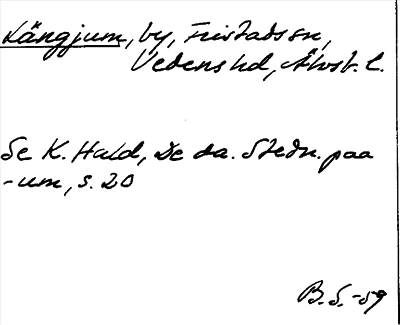 Längjum, by, Fristads sn,
Vedens hd, Älvsb. l.
Se K. Hald, De da. Stedn. paa
-um, s. 20
B. S. -59